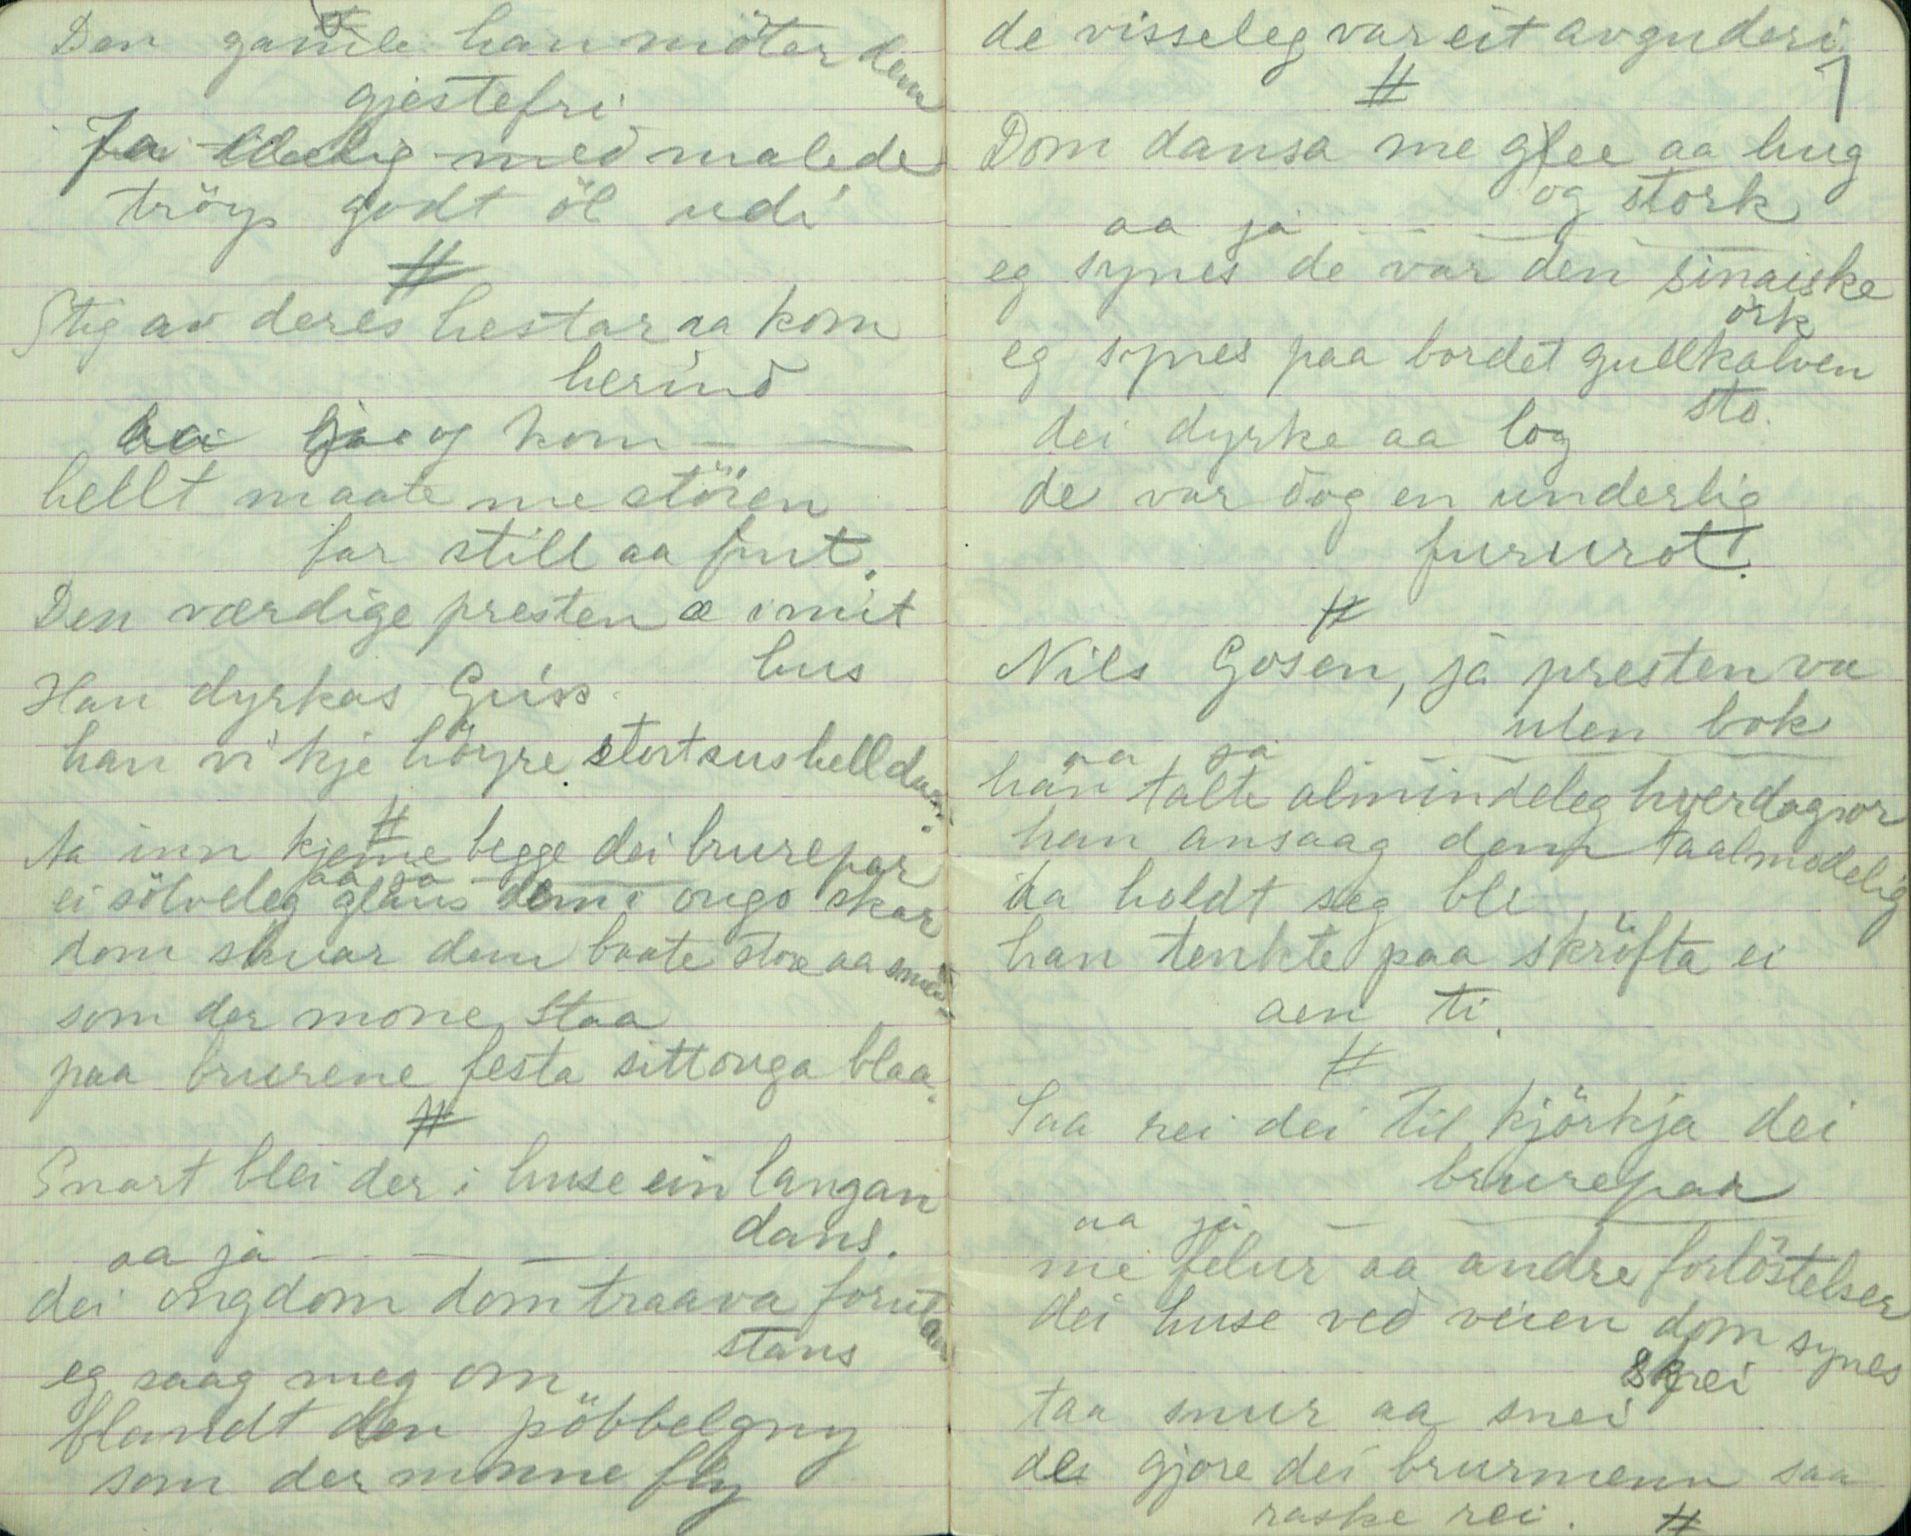 Den gamle han möter dem
gjestefri
Ja med malede
tröys godt öl udi
#
Stig av deres hestar aa kom
herind
og kom — —
hellt maate me stöien
far still aa fint.
Den værdige presten æ i mit
hus
Han dyrkas Griss.
han vi kje höyre stortsushell
#
Aa inn kjeme begge dei brurepar
aa ja — —
ei sölveleg glans dem i ongo skar
dom skuar dem baate store aa smaa
som der mone staa
paa brurene festa sittonga blaa.
#
Snart blei der i huse ein langan
dans.
aa ja — — —
dei ongdom dom traava forutan
stans
eg saag meg om
blandt den pöbbelgny
som der monne fly
7
de visseleg var eit avguderi.
#
Dom dansa me glee aa hug
og stork
aa ja — — —
eg synes de var den sinaiske
örk
eg synes paa bordet gullkalven
sto.
dei dyrke aa log
de var dog en underlig
fururot.
#
Nils Gosen, ja presten va
uten bok
aa ja — — —
han talte almindeleg hverdagsor
han ansaag dem taalmodelig
aa holdt seg bli
han tenkte paa skröfta ei
aen ti.
#
Saa rei dei til kjörkja dei
brurepar
aa ja — —
me felur aa andre forlöstelser
dei huse ved veien dom synes
skrei
taa snur aa snei
de gjore dei brurmenn saa
raske rei. #